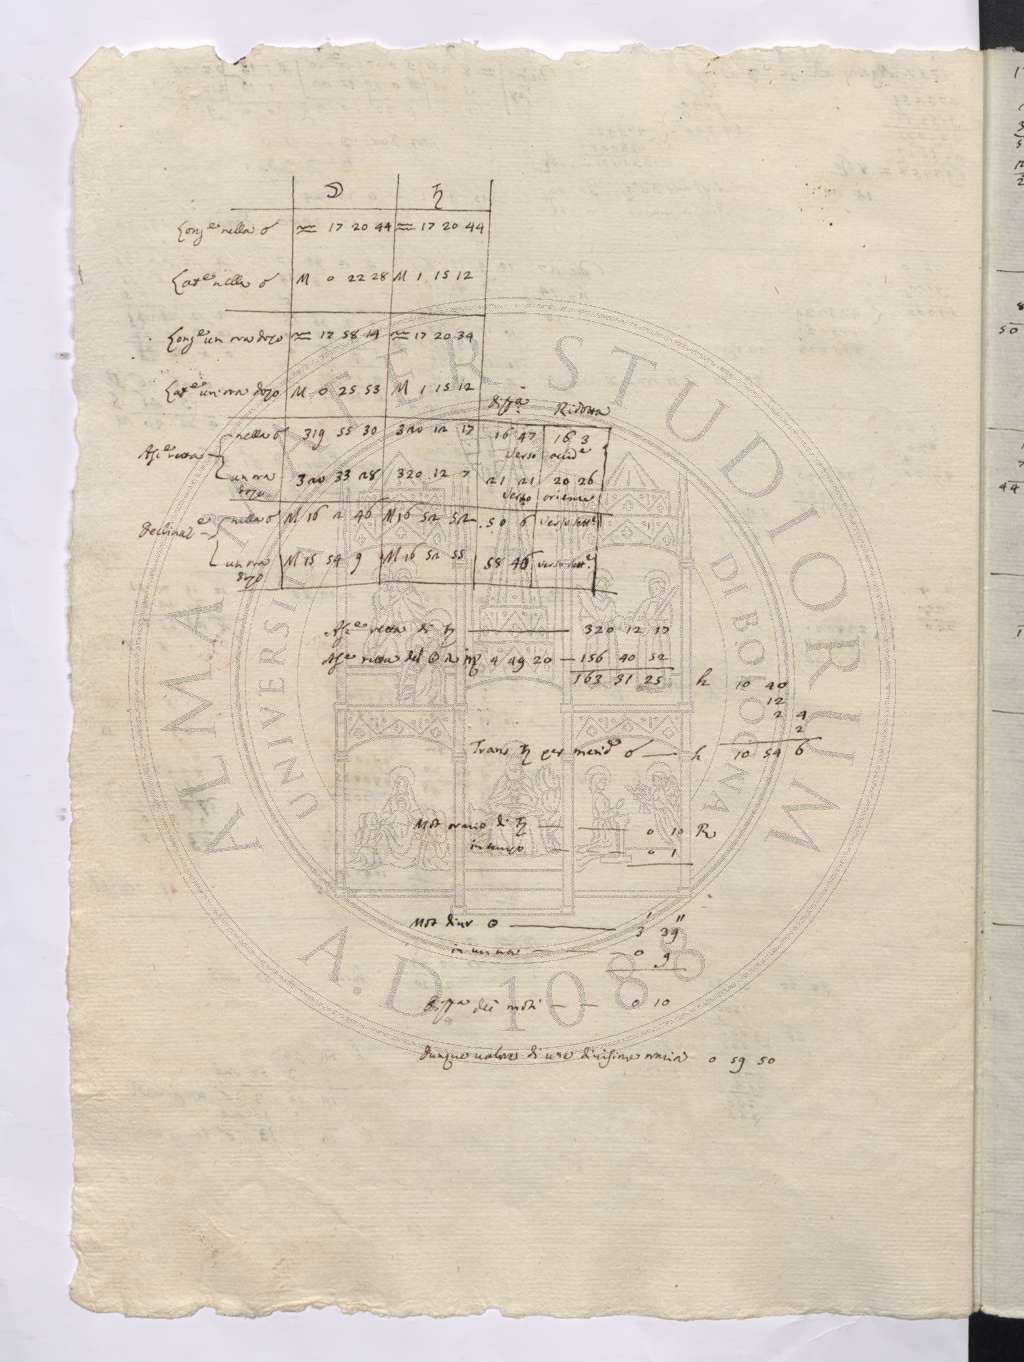 ☽ ♄
Long.ne nella ☌ ♒ 17 20 44 ♒ 17 20 44
Lat.ne nella ☌ M 0 22 28 M 1 15 12
Long.ne un ora dopo ♒ 17 58 14 ♒ 17 20 34
Lat.ne un ora dopo M 0 25 53 M 1 15 12
diff.a Ridotta
Asc.ne retta nella ☌ 319 55 30 320 12 17 16 47 16 3
verso occid.e
un ora dopo 320 33 28 320 12 7 21 21 20 26
verso oriente
Declinaz.e nella ☌ M 16 2 46 M 16 52 52 50 6 verso sett.e
un ora dopo M 15 54 9 M 16 52 55 58 46 verso sett.e
Asc.ne retta di ♄ 320 12 17
Asc.ne retta del ☉ in ♍ 4 49 20 156 40 52
163 31 25 h 10 40
12
2 4
2
Trans. ♄ per merid.o ☌ h 10 54 6
Mot orario di ♄ 0 10 R
in tempo 0 1
Mot diur ☉ 3' 39"
in un ora 0 9
diff.a dei moti 0 10
dunque valore di una oraria 0 59 50
ALMA MATER STUDIORUM
UNIVERSITÀ DI BOLOGNA
A.D. 1088